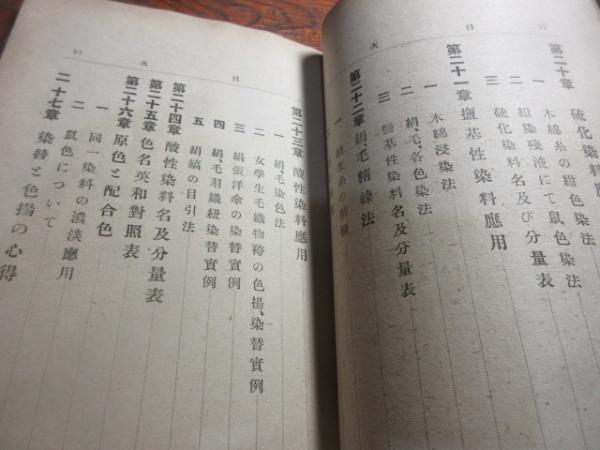 目次
第二十章 硫化染料應用
一 木綿糸の紺色染法
二 紺染殘液にて鼠色染法
三 硫化染料名及び分量表
第二十一章 鹽基性染料應用
一 木綿浸染法
二 絹、毛、各色染法
三 鹽基性染料名及分量表
第二十二章 絹、毛精練法
目次
第二十三章 酸性染料應用
一 絹、毛染色法
二 女學生毛織物袴の色揚、染替實例
三 絹張洋傘の染替實例
四 絹、毛羽織紐染替實例
五 絹縞の目引法
第二十四章 酸性染料名及分量表
第二十五章 色名英和對照表
第二十六章 原色と配合色
一 同一染料の濃淡應用
二 鼠色について
二十七章 染替と色揚の心得